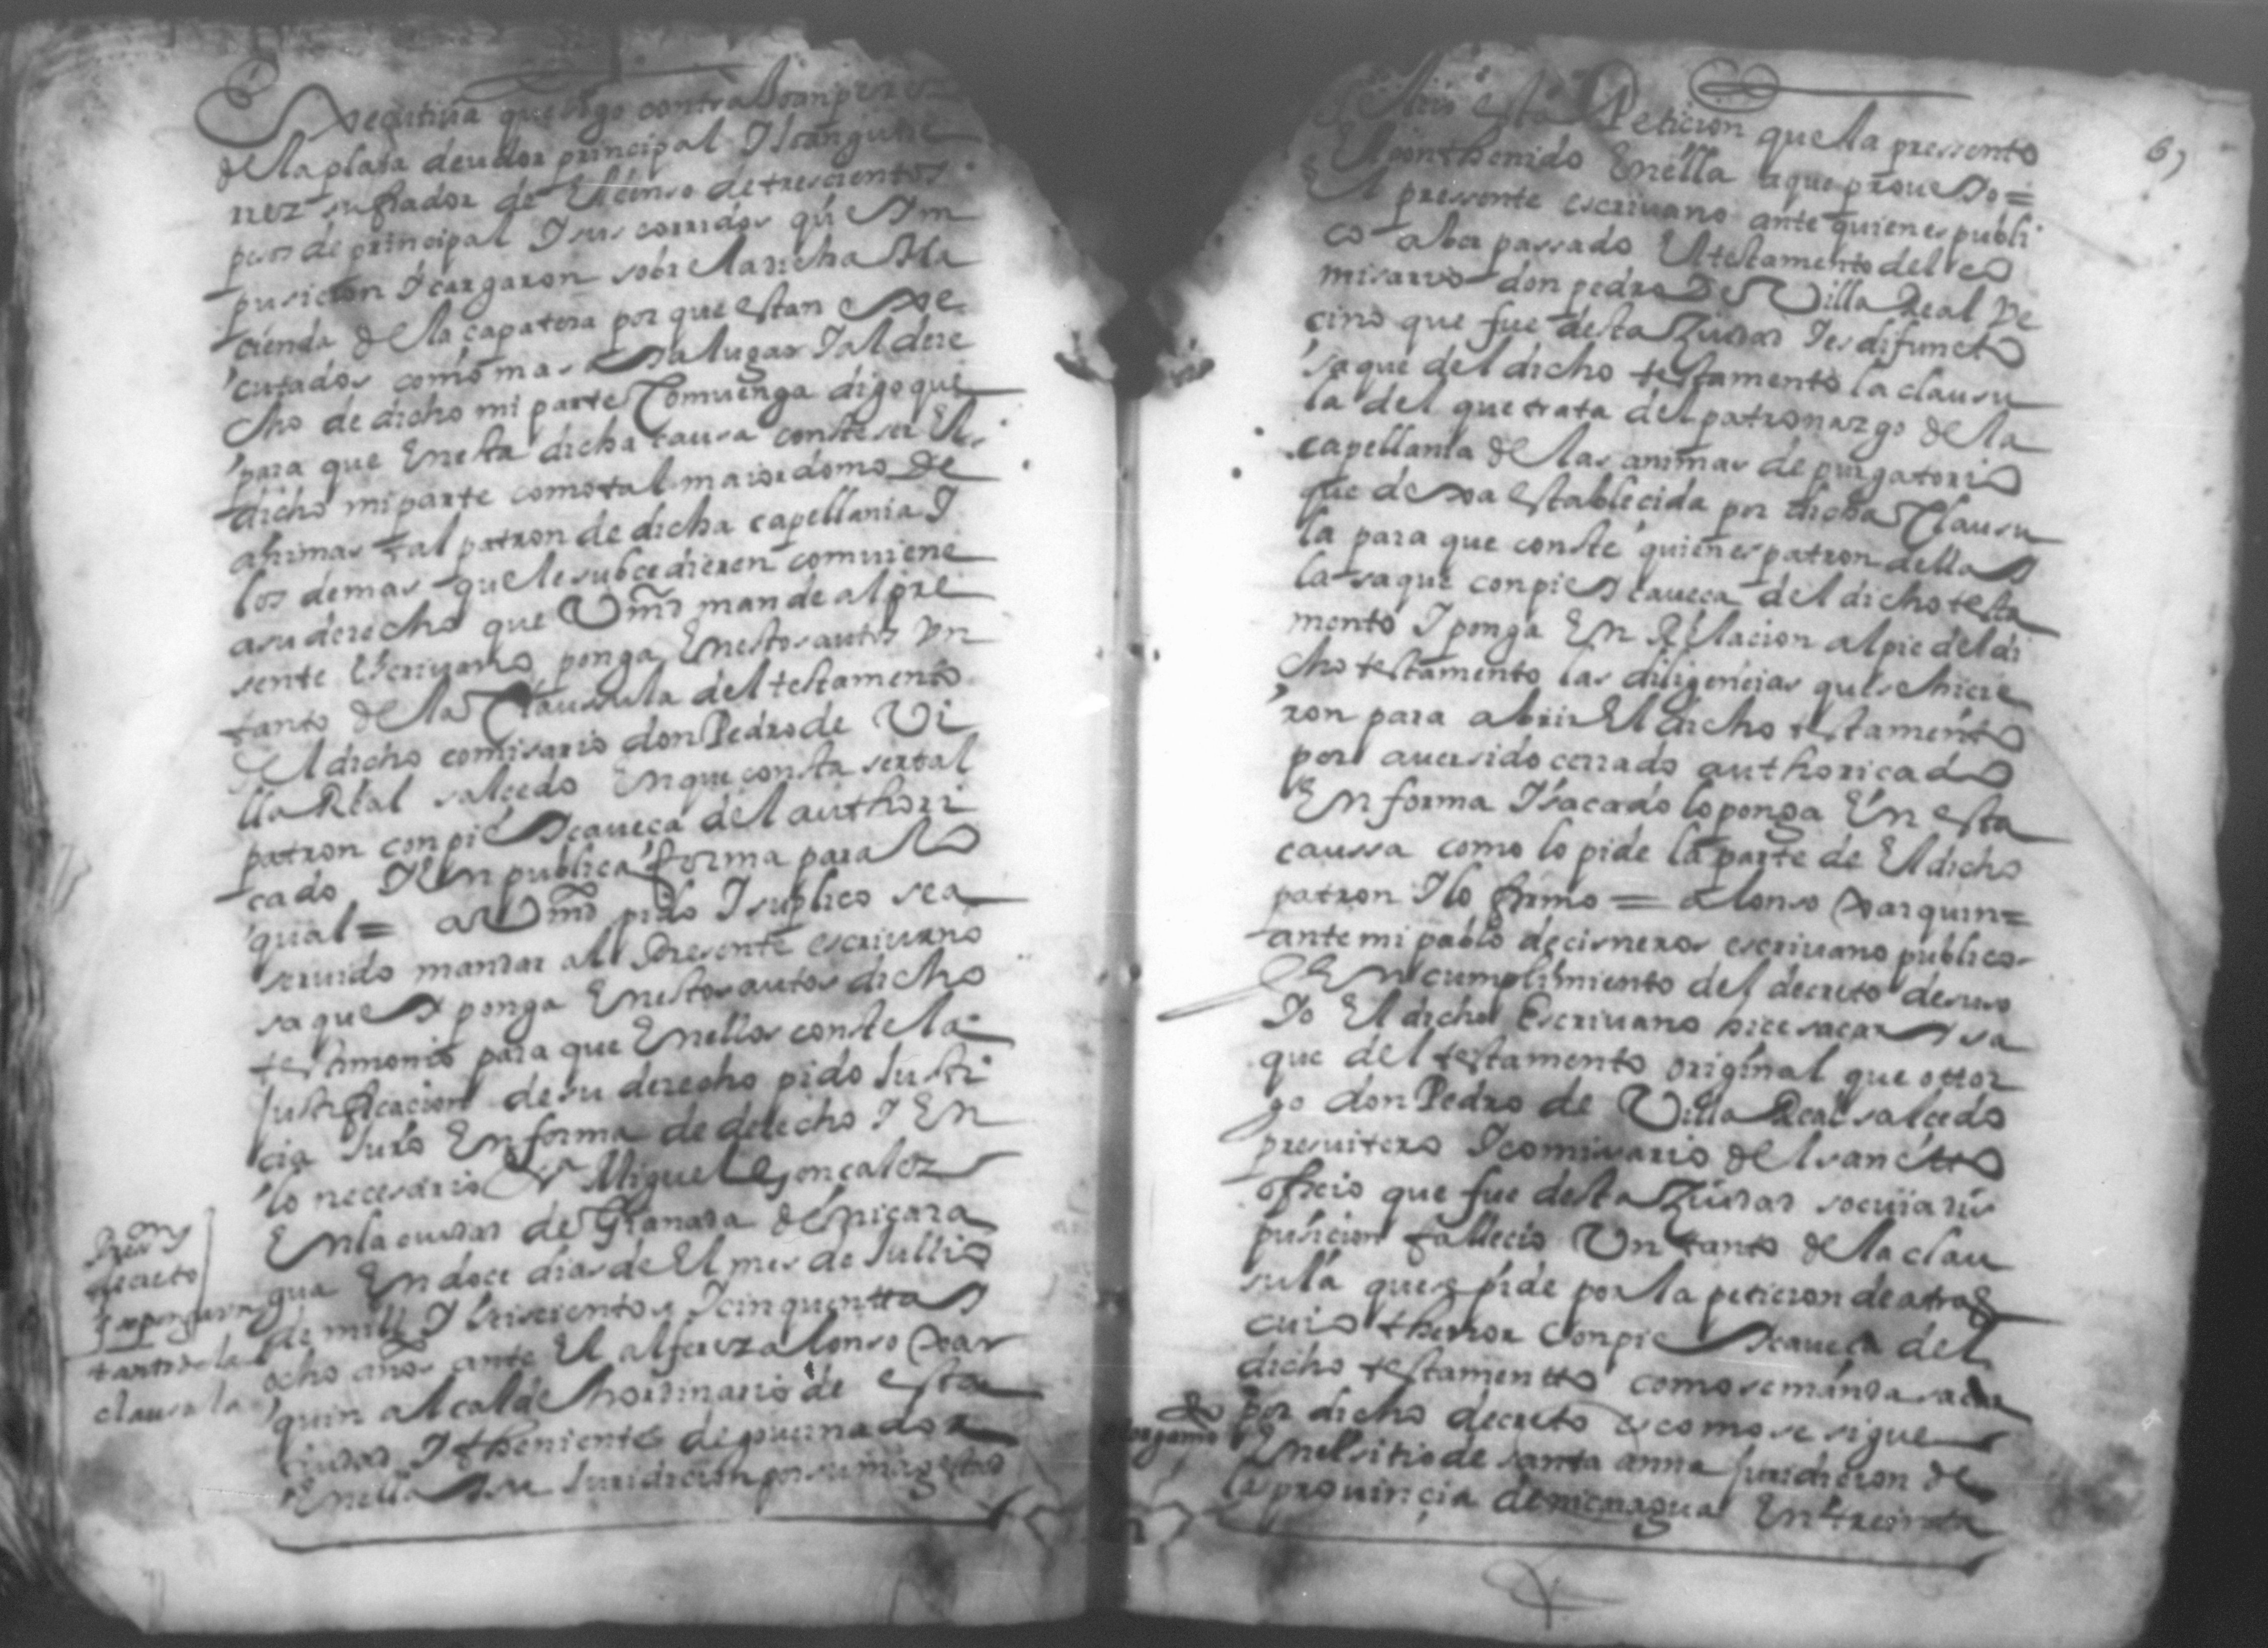 Executiua que sigo contra Joan perez
de la plaça deudor principal I Joan gutie
rrez su fiador de El censo de trescientos
pesos de principal I sus corridos qu Im
pusicion I cargaron sobre la dicha Ha
cienda de la çapatera por que estan exe
cutados como mas aia lugar I al dere
cho de dicho mi parte Comuenga digo que
para que En esta dicha causa conste ser El
dicho mi parte como tal maiordomo de
animas tal patron de dicha capellania I
los demas que le subcedieren comuiene
a su derecho que Vmd mande al pre
sente Escriuano ponga En estos autos vn
tanto de la Clausula del testamento
del dicho comisario don Pedro de Vi
lla Real salcedo En que consta ser tal
patron con pie I caueça del authori
çado I En publica forma para lo
qual = a Vmd pido I suplico sea
seruido mandar al Presente escriuano
saque I ponga En estos autos dicho
testimonio para que En ellos conste la
Justificacion de su derecho pido Justi
cia Juro En forma de derecho I En
lo necesario &ª Miguel Gonçalez
En la ciudad de Granada de nicara
gua En doce dias de El mes de Jullio
de mill I seiscientos I cinquentta I
ocho años ante El alferez alonso xar
quin alcalde hordinario de esta
ciudad I theniente de gouernador
En ella I su Juridicion por su magestad
decreto
tanto de la
clausula
61
esta Peticion que la presento
El conthenido En ella a que proueio =
El pressente escriuano ante quien es publi
co aber passado El testamento del co
misario don pedro de Villa Real ve
cino que fue desta Ziudad I es difuncto
saque del dicho testamento la clausu
la del que trata del patronazgo de la
capellania de las animas de purgatorio
que dexa establecida por dicha Clausu
la para que conste quien es patron della I
la saque con pie I caueça del dicho testa
mento I ponga En Relacion al pie del di
cho testamento las diligencias que se hicie
ron para abrir El dicho testamento
por auer sido cerrado authoricado
En forma I sacado lo ponga En esta
caussa como lo pide la parte de El dicho
patron I lo firmo = alonso xarquin =
ante mi pablo de cisneros escriuano publico
En cumplimiento del decreto de suso
Io El dicho Escriuano hice sacar I sa
que del testamento original que ottor
go don Pedro de Villa Real salcedo
presuitero I comisario del sanctto
oficio que fue desta Ziudad so cuia dis
pusicion fallecio Vn tanto de la clau
sula que se pide por la peticion de atras
cuio thenor Con pie I caueça del
dicho testamentto como se manda sacar
por dicho decreto es como se sigue
En el sitio de santa anna Juridicion de
la prouincia de nicaragua En treinta